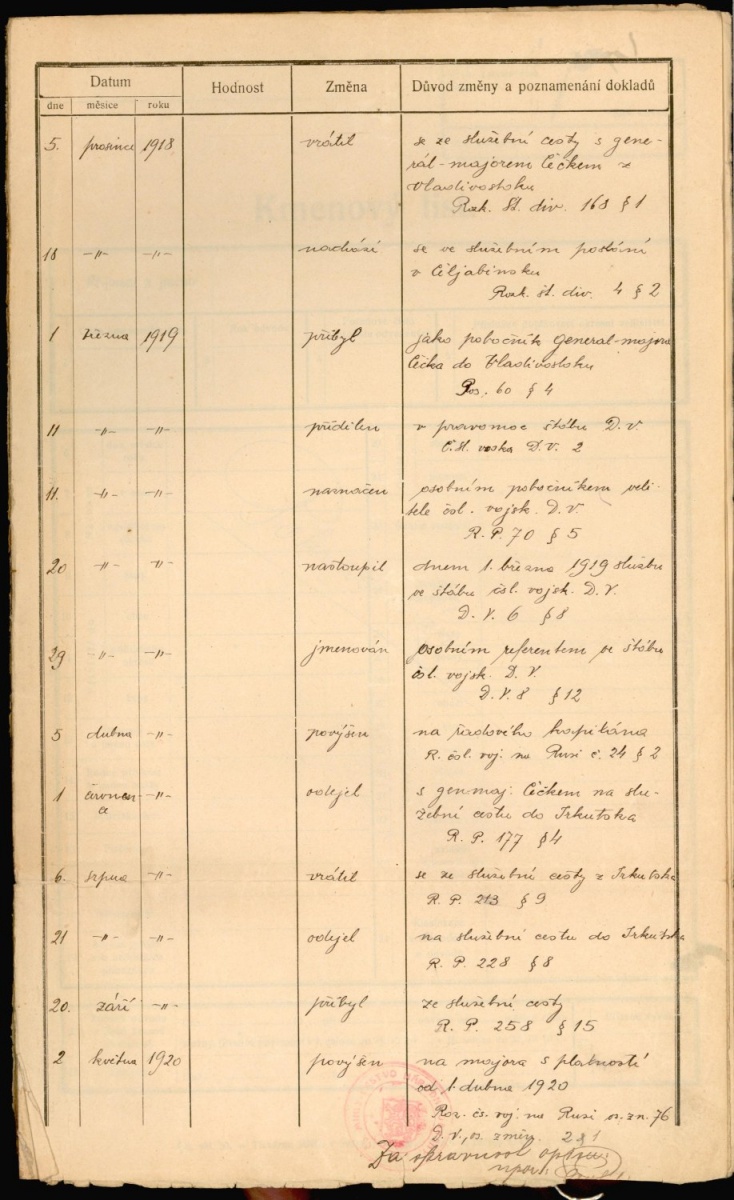 Datum
Hodnost
Změna
Důvod změny a poznamenání dokladů
dne měsíce roku
5. prosince 1918 vrátil se ze služební cesty s gene-
rál-majorem Čečkem z
Vladivostoku
Rozk. št. div. 168 § 1
18 -"- -"- nachází se ve služebním poslání
v Čiljabinsku
Rozk. št. div. 4 § 2
1 března 1919 přibyl jako pobočník general-majora
Čečka do Vladivostoku
60 § 4
11 -"- -"- přidělen v pravomoc štábu D.V.
Č.sl. voska D.V. 2
11. -"- -"- naznačen osobním pobočníkem veli-
tele čsl. vojsk. D.V.
R.P. 70 § 5
20 -"- -"- nastoupil dnem 1. března 1919 službu
ve štábu čsl. vojsk. D.V.
D.V. 6 § 8
29 -"- -"- jmenován osobním referentem ve štábu
čsl. vojsk. D.V.
D.V. 8 § 12
5 dubna -"- povýšen na řadového kapitána
R. čsl. voj. na Rusi č. 24 § 2
1 červen-
ce -"- odejel s gen-maj. Čečkem na slu-
žební cestu do Irkutska
R.P. 177 § 4
6. srpna -"- vrátil se ze služební cesty z Irkutska
R.P. 213 § 9
21 -"- -"- odejel na služební cestu do Irkutska
R.P. 228 § 8
20. září -"- přibyl ze služební cesty
R.P. 258 § 15
2 května 1920 povýšen na majora s platností
od 1. dubna 1920
Roz. čs. voj. na Rusi os. zn. 76
D.V., os. změn. 281
Za správnost opisu